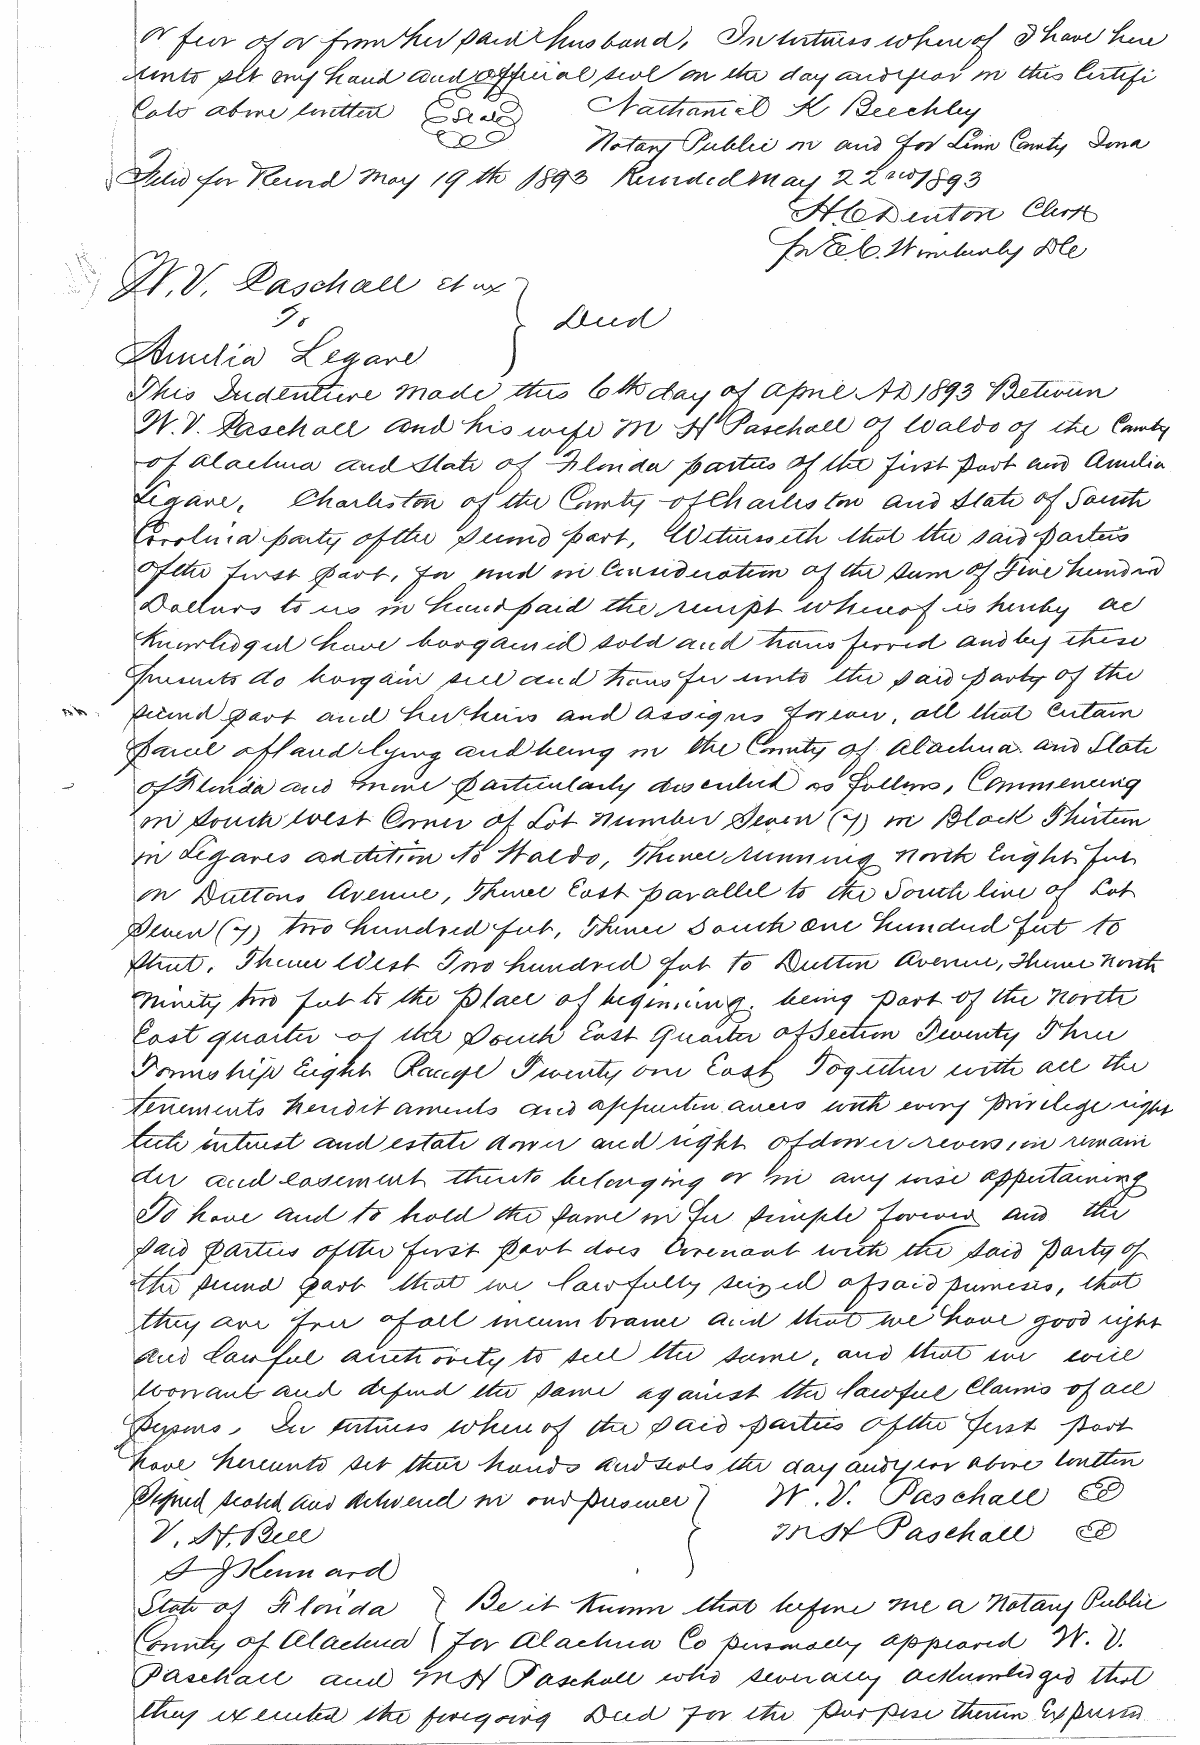 or fear of or from her said husband, In testness whereof I have here
unto set my hand and official seal on the day and year in this Certifi
Cate above written Seal Nathaniel K Beechley
Notary Public in and for Linn County Iowa
Filed for Record May 19th 1893 Recorded May 22nd 1893
H C Denton Clerk
pr E. C. Wimberly DC
W. V. Paschall et ux
To Deed
Amelia Legare
This Indenture Made this 6th day of April AD 1893 Between
W. V. Paschall and his wife M H Paschall of Waldo of the County
of Alachua and State of Florida parties of the first part and Amelia
Legare, Charleston of the County of Charleston and State of South
Carolina party of the second part, Witnesseth that the said parties
of the first part, for and in Consideration of the sum of Five hundred
Dollars to us in hand paid the receipt whereof is hereby ac
knowledged have bargained sold and transferred and by these
presents do bargain sell and transfer unto the said party of the
second part and her heirs and assigns forever, all that certain
parcel of land lying and being in the County of Alachua and State
of Florida and more particularly described as follows, Commencing
in South west Corner of Lot Number Seven (7) in Block Thirteen
in Legares addition to Waldo, Thence running North Eight feet
on Duttons Avenue, Thence East parallel to the South line of Lot
Seven (7) two hundred feet, Thence South one hundred feet to
street, Thence West Two hundred feet to Dutton Avenue, Thence North
Ninety two feet to the place of beginning. being part of the North
East quarter of the South East Quarter of Section Twenty Three
Township Eight Range Twenty one East Together with all the
tenements hereditaments and appurtenances with every privilege right
title interest and estate dower and right of dower reversion remain
der and easement thereto belonging or in any wise appertaining
To have and to hold the same in fee simple forever and the
said parties of the first part does Covenant with the said party of
the second part that we lawfully seized of said premises, that
they are free of all incumbrance and that we have good right
and lawful authority to sell the same, and that we will
warrant and defend the same against the lawful Claims of all
persons, In testness whereof the said parties of the first part
have hereunto set their hands and seals the day and year above written
Signed sealed and delivered in our presence W. V. Paschall
V. H. Bell M H Paschall
S J Kennard
State of Florida Be it Known that before me a Notary Public
County of Alachua for Alachua Co personally appeared W. V.
Paschall and M H Paschall who severally acknowledged that
they executed the foregoing Deed for the purpose therein Expressed